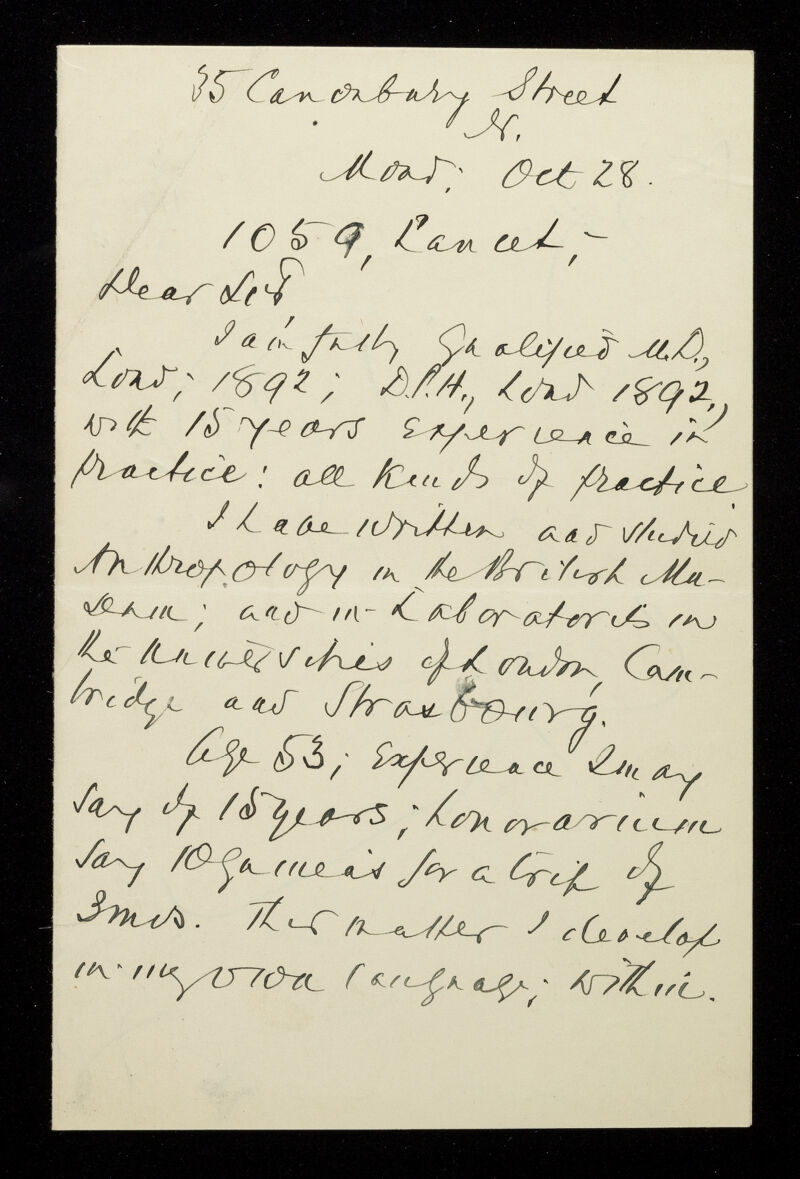 35 Canonbury Street
N.
Mond; Oct 28.
1059, Lancet,-
Dear Sir,
I am fully Qualified M.D.,
Lond; 1892; D.P.H., Lond 1892,,
with 15 years experience in
practice: all kinds of practice.
I have written and studied
Anthropology in the British Mu-
seum; and in Laboratories in
the Universities of London, Cam-
bridge and Strasbourg.
Age 53; Experience I may
say of 15 years; honorarium
say 10 Guineas for a trip of
3mos. This matter I develop
in my own language; within.